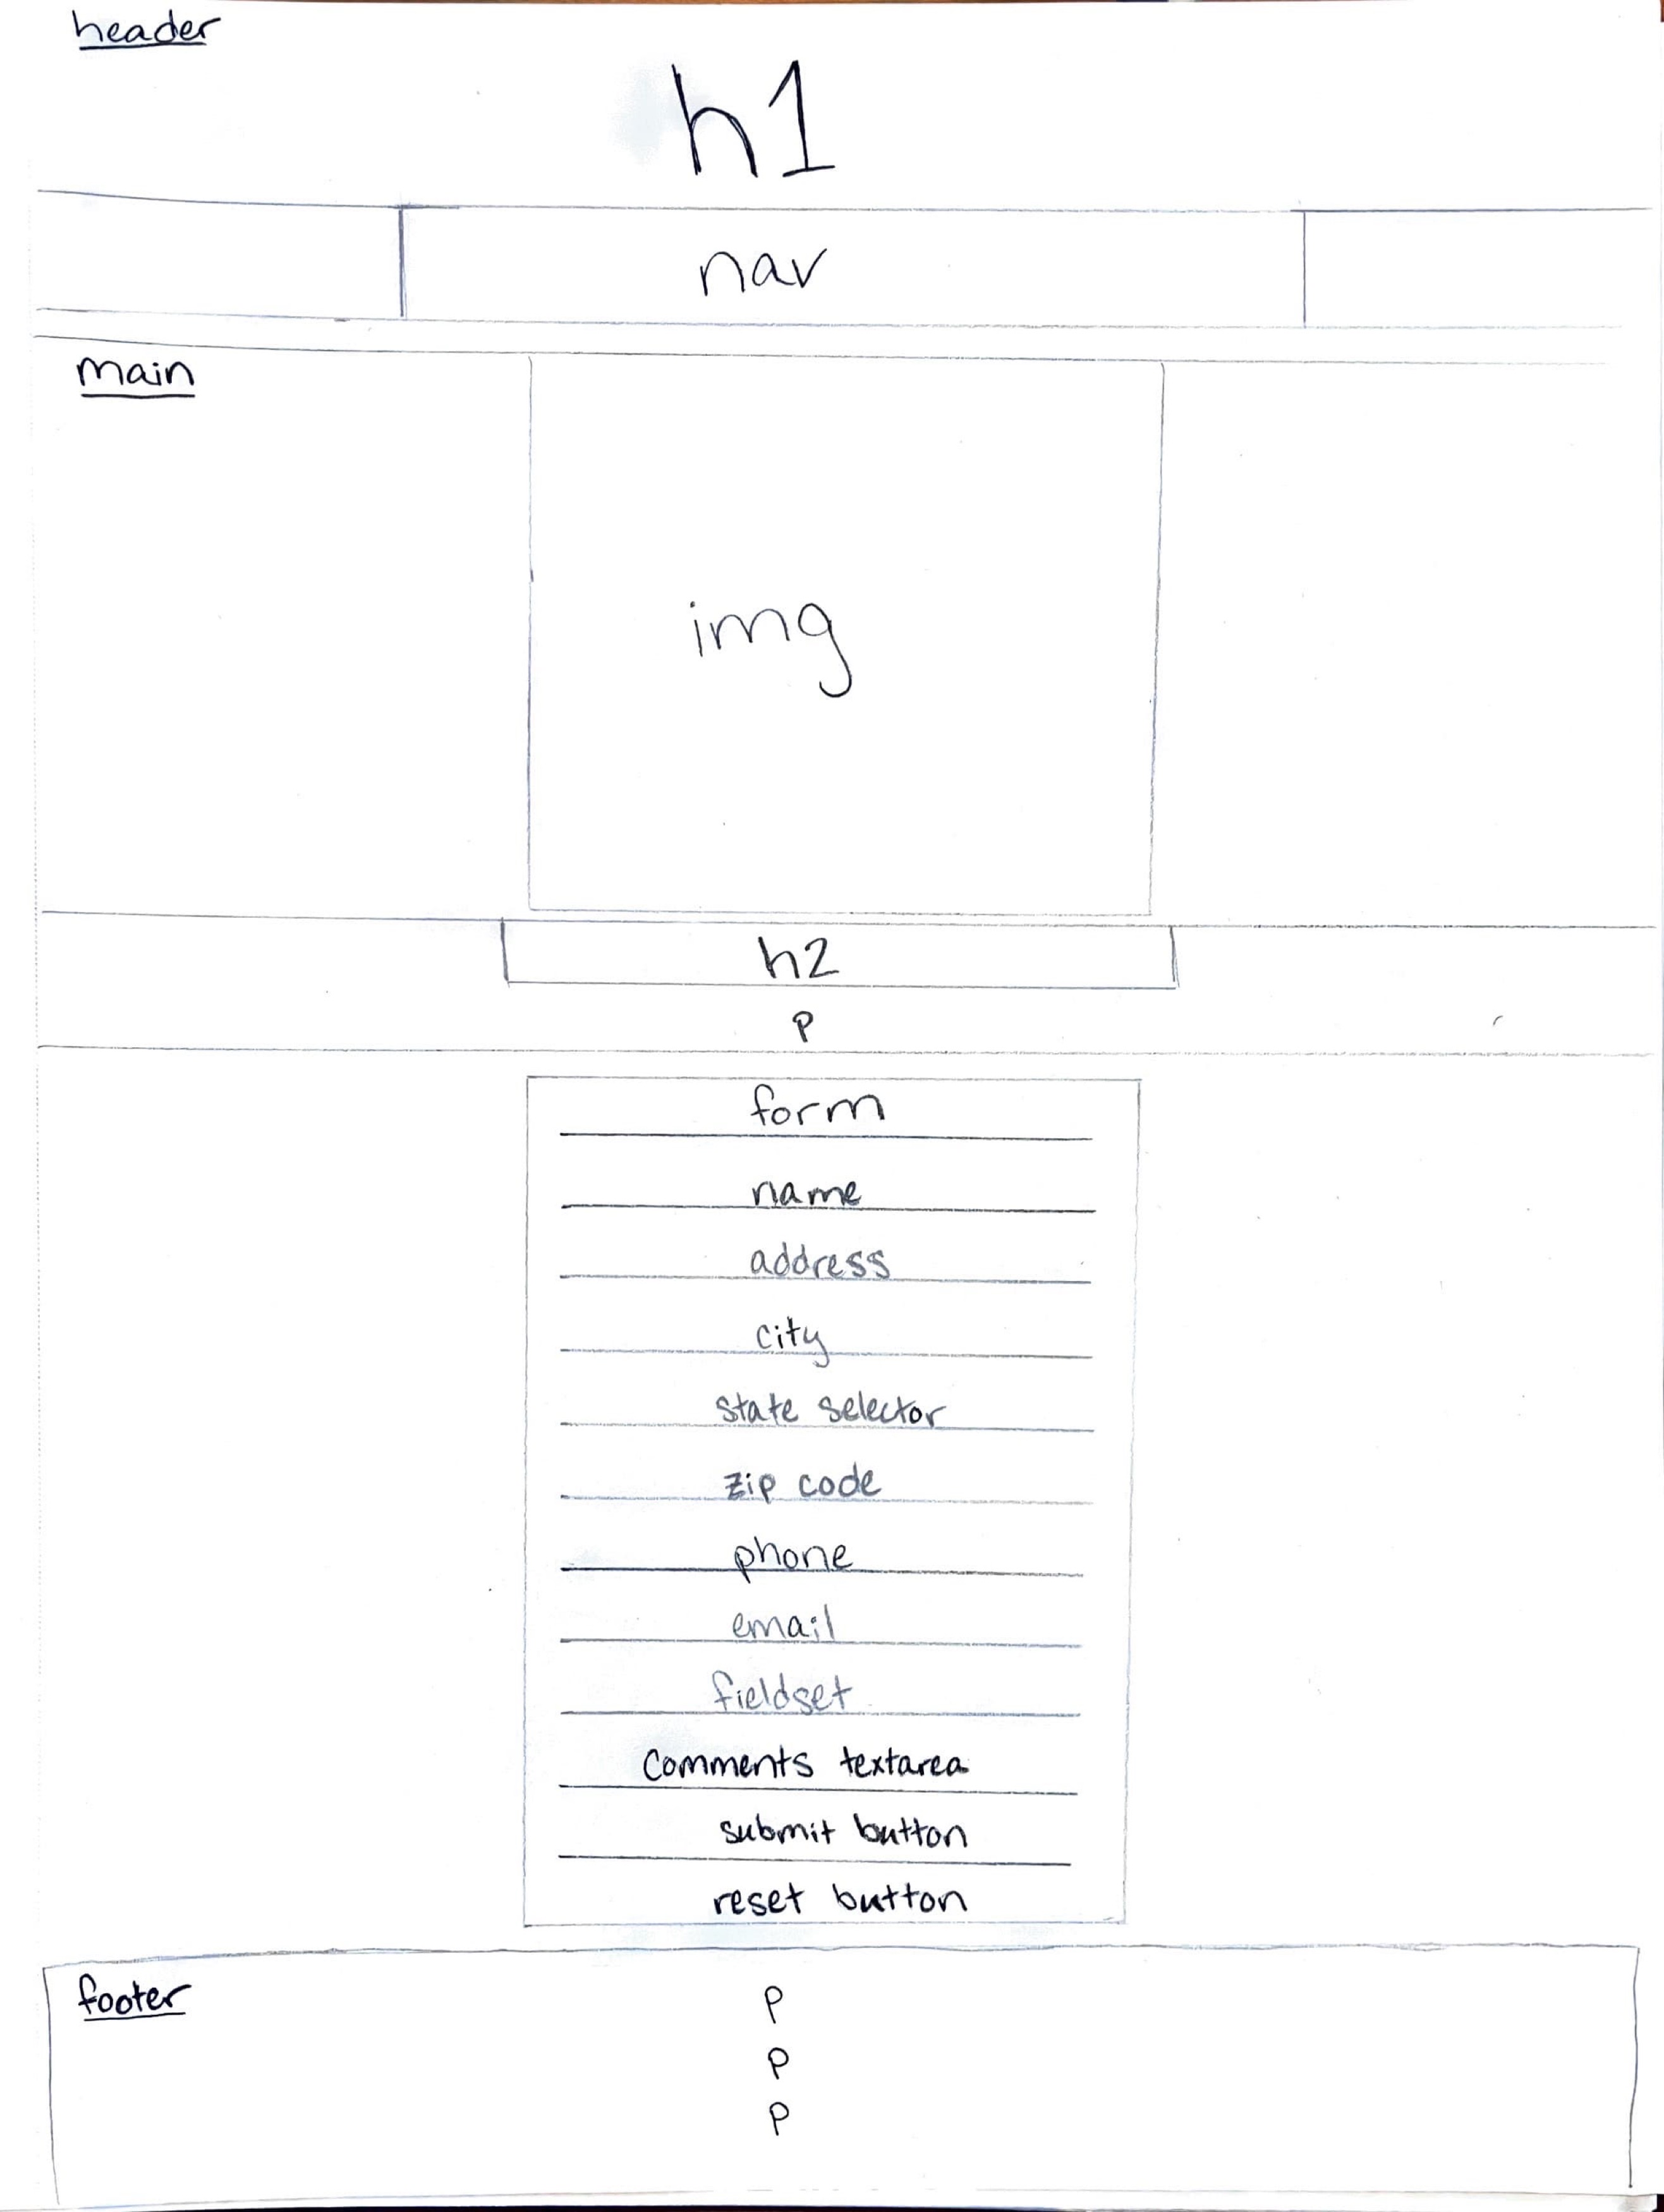 header
h1
nav
main
img
h2
p
form
name
address
city
state selector
zip code
phone
email
fieldset
comments textarea
submit button
reset button
footer
p
p
p